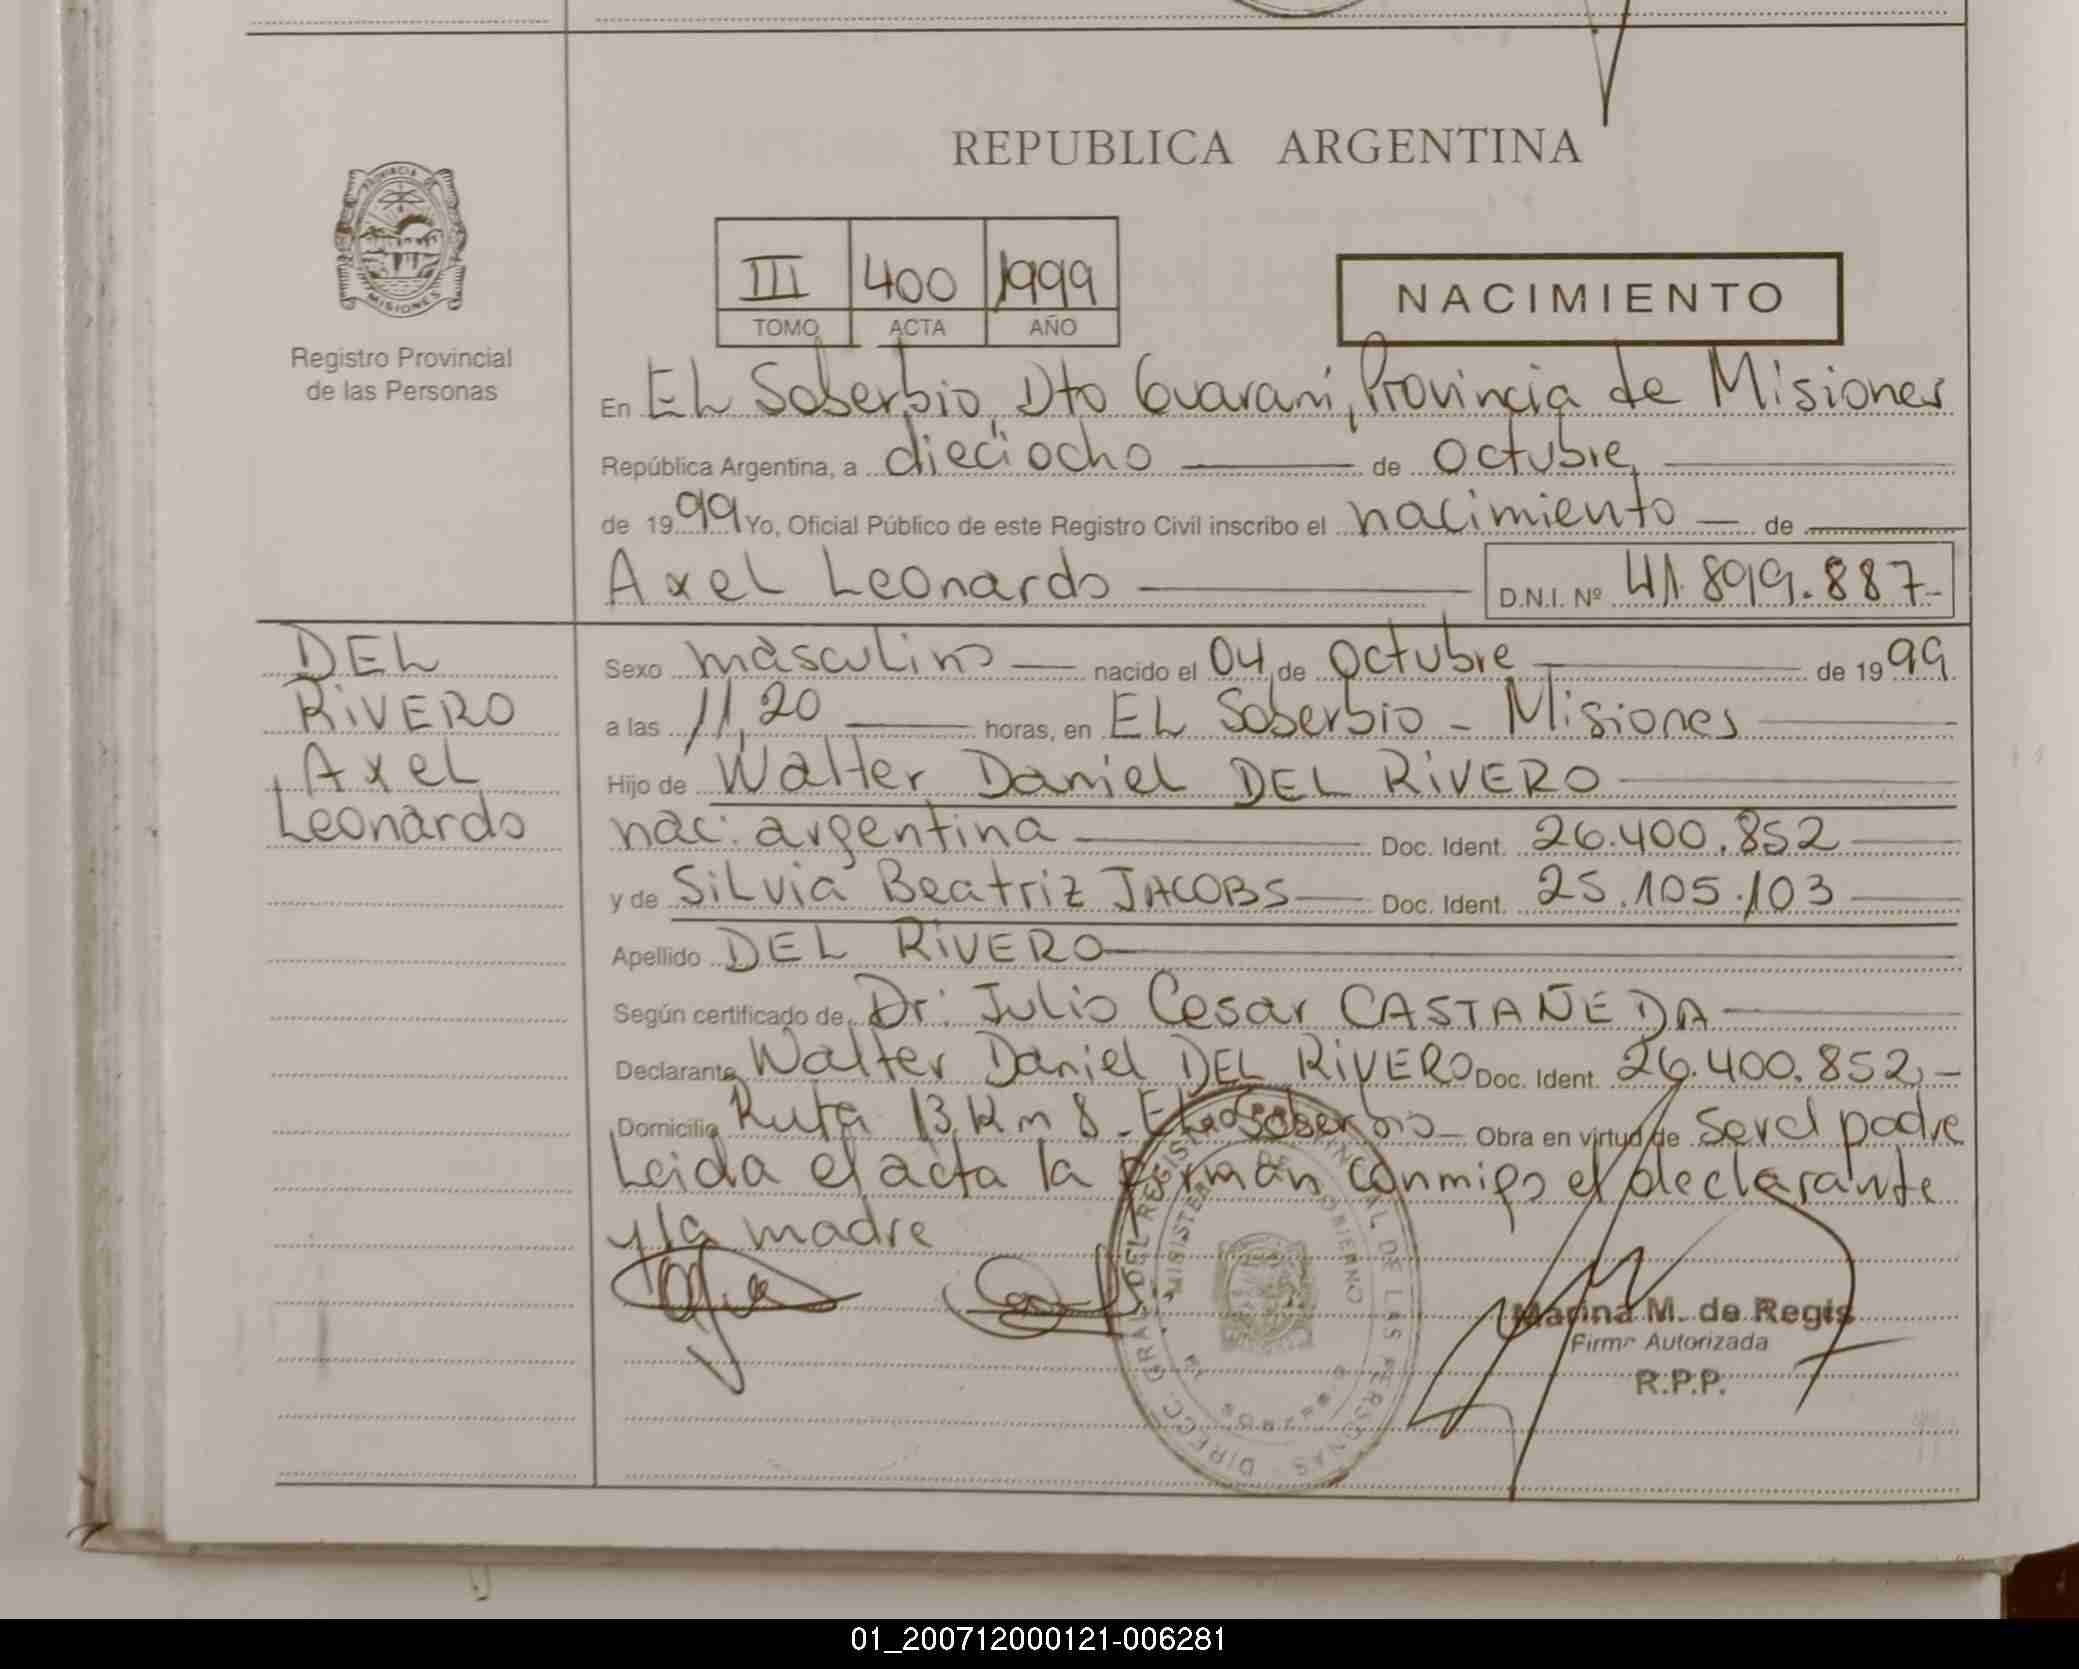 REPUBLICA ARGENTINA
III 400 1999
TOMO ACTA AÑO
NACIMIENTO
PROVINCIA DE
MISIONES
Registro Provincial
de las Personas
En EL Soberbio, Dto Guaraní, Provincia de Misiones
República Argentina, a dieciocho — de Octubre, —
de 1999 Yo, Oficial Público de este Registro Civil inscribo el nacimiento — de
Axel Leonardo — D.N.I. Nº 41.899.887-
DEL
RIVERO
Axel
Leonardo
Sexo masculino — nacido el 04 de Octubre — de 1999
a las 11,20 — horas, en EL Soberbio - Misiones —
Hijo de Walter Daniel DEL RIVERO —
nac. argentina — Doc. Ident. 26.400.852 —
y de Silvia Beatriz JACOBS — Doc. Ident. 25.105.103 —
Apellido DEL RIVERO —
Según certificado de Dr. Julio Cesar CASTAÑEDA —
Declarante Walter Daniel DEL RIVERO Doc. Ident. 26.400.852,-
Domicilio Ruta 13 Km 8 - EL Soberbio - Obra en virtud de ser el padre
Leida el acta la firman conmigo el declarante
y la madre
DIRECC. GRAL. DEL REGISTRO PROVINCIAL DE LAS PERSONAS
MINISTERIO DE GOBIERNO
Marina M. de Regis
Firma Autorizada
R.P.P.
01_200712000121-006281